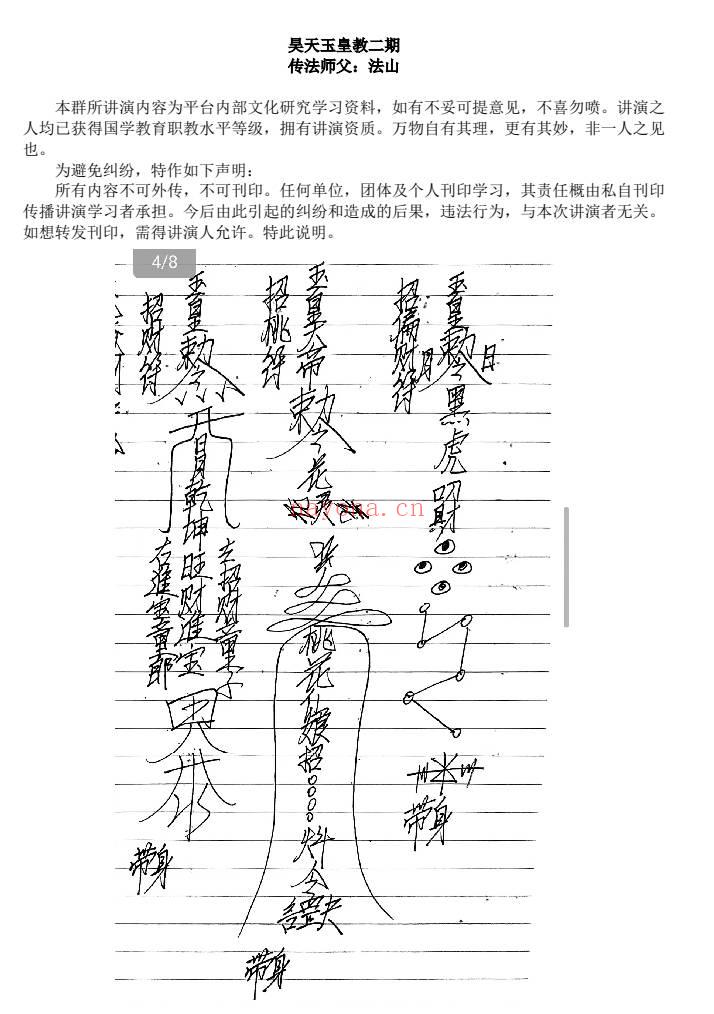 昊天玉皇教二期
传法师父：法山
本群所讲演内容为平台内部文化研究学习资料，如有不妥可提意见，不喜勿喷。讲演之
人均已获得国学教育职教水平等级，拥有讲演资质。万物自有其理，更有其妙，非一人之见
也。
为避免纠纷，特作如下声明：
所有内容不可外传，不可刊印。任何单位，团体及个人刊印学习，其责任概由私自刊印
传播讲演学习者承担。今后由此引起的纠纷和造成的后果，违法行为，与本次讲演者无关。
如想转发刊印，需得讲演人允许。特此说明。
4/8
玉皇敕令黑虎
招偏财符
日
月
带身
玉皇大帝敕令花
招桃符
桃花仙娘招
令
带身
玉皇敕令
招财符
开
乾坤旺财進宝
左招财童子
右進宝童郎
带身
nayona.cn